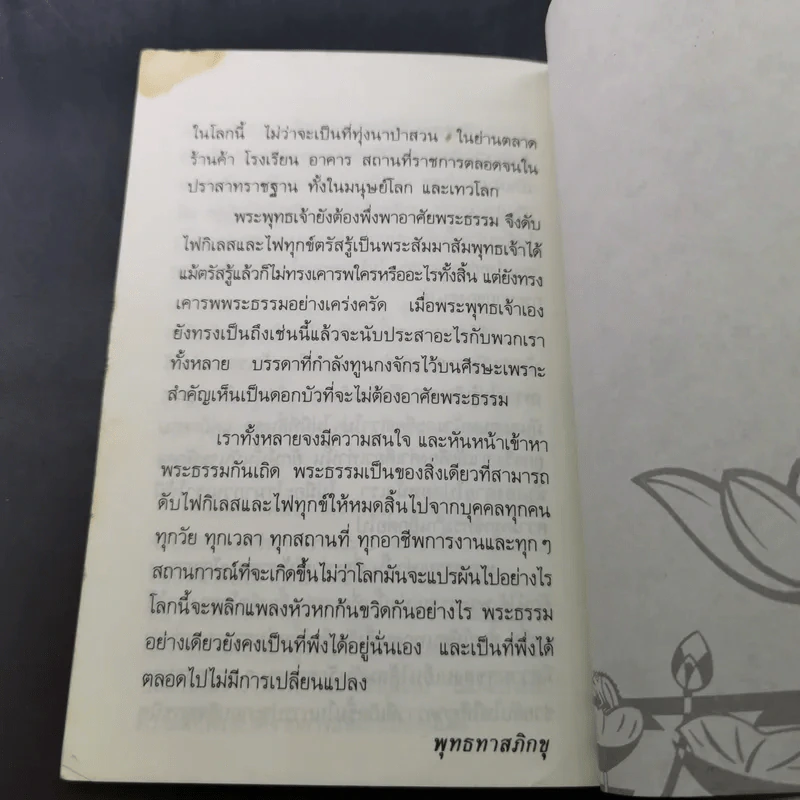 ในโลกนี้ ไม่ว่าจะเป็นที่ทุ่งนาป่าสวน ในย่านตลาด
ร้านค้า โรงเรียน อาคาร สถานที่ราชการตลอดจนใน
ปราสาทราชฐาน ทั้งในมนุษย์โลก และเทวโลก
พระพุทธเจ้ายังต้องพึ่งพาอาศัยพระธรรม จึงดับ
ไฟกิเลสและไฟทุกข์ตรัสรู้เป็นพระสัมมาสัมพุทธเจ้าได้
แม้ตรัสรู้แล้วก็ไม่ทรงเคารพใครหรืออะไรทั้งสิ้น แต่ยังทรง
เคารพพระธรรมอย่างเคร่งครัด เมื่อพระพุทธเจ้าเอง
ยังทรงเป็นถึงเช่นนี้แล้วจะนับประสาอะไรกับพวกเรา
ทั้งหลาย บรรดาที่กำลังทูนกงจักรไว้บนศีรษะเพราะ
สำคัญเห็นเป็นดอกบัวที่จะไม่ต้องอาศัยพระธรรม
เราทั้งหลายจงมีความสนใจ และหันหน้าเข้าหา
พระธรรมกันเถิด พระธรรมเป็นของสิ่งเดียวที่สามารถ
ดับไฟกิเลสและไฟทุกข์ให้หมดสิ้นไปจากบุคคลทุกคน
ทุกวัย ทุกเวลา ทุกสถานที่ ทุกอาชีพการงานและทุกๆ
สถานการณ์ที่จะเกิดขึ้นไม่ว่าโลกมันจะแปรผันไปอย่างไร
โลกนี้จะพลิกแพลงหัวหกก้นขวิดกันอย่างไร พระธรรม
อย่างเดียวยังคงเป็นที่พึ่งได้อยู่นั่นเอง และเป็นที่พึ่งได้
ตลอดไปไม่มีการเปลี่ยนแปลง
พุทธทาสภิกขุ